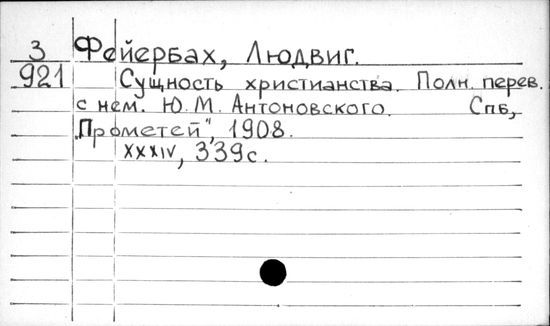 3 Фейербах, Людвиг.
921 Сущность христианства. Полн. перев.
с нем. Ю. М. Антоновского. Спб,
„Прометей", 1908.
XXXIV, 339с.